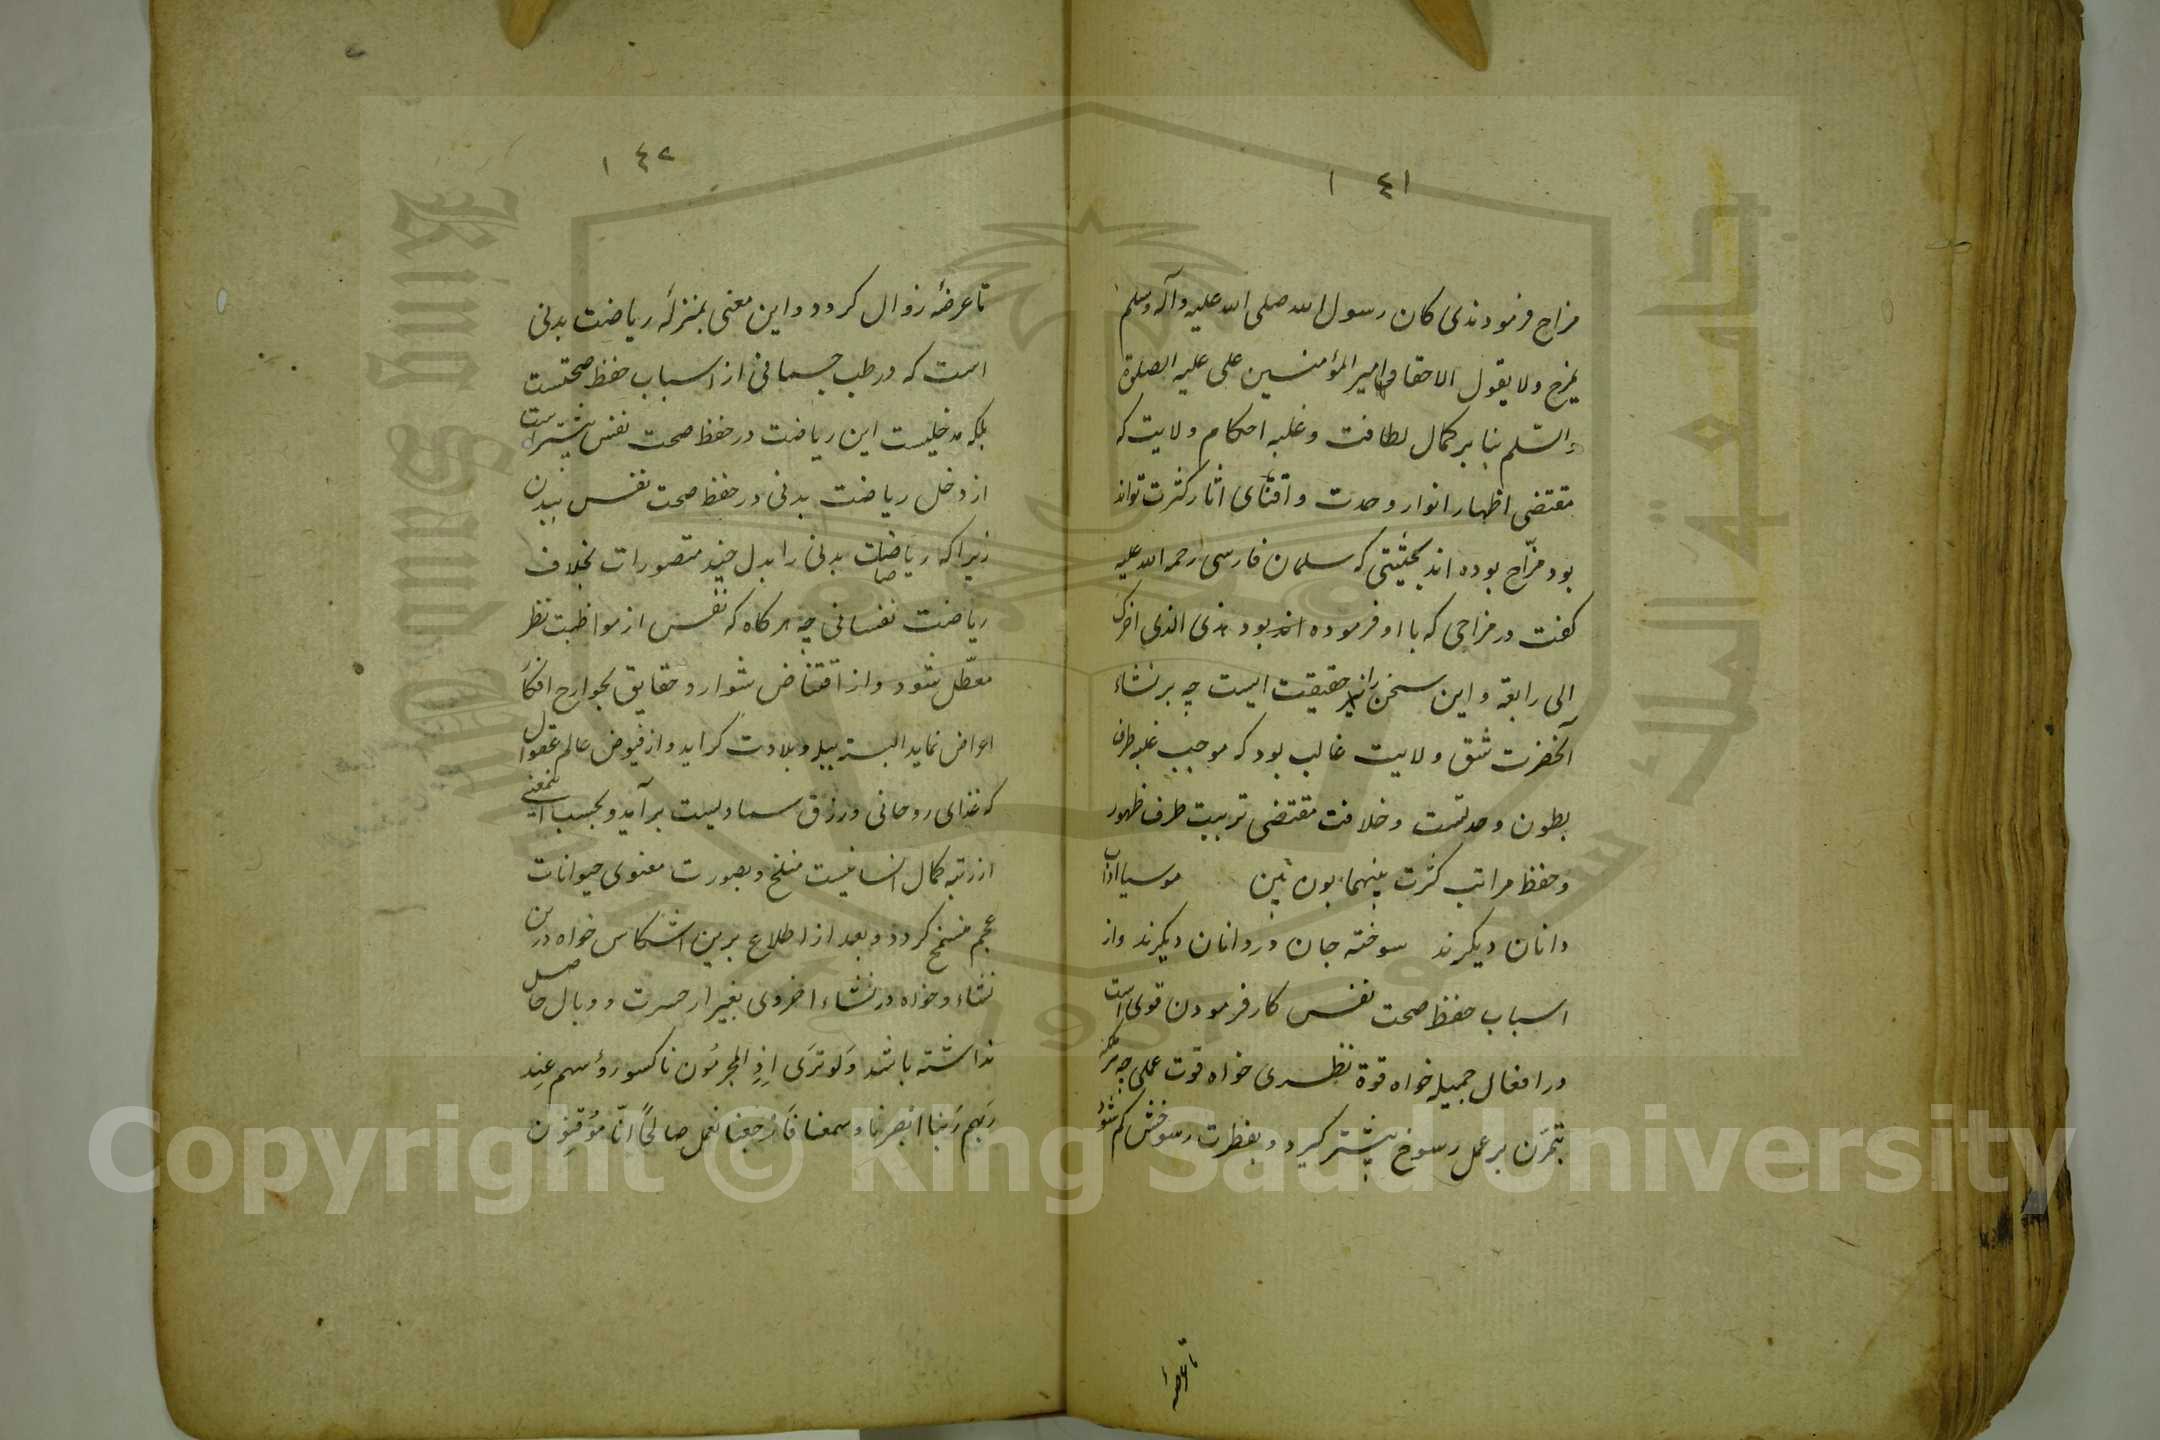 ١٤١
مزاح فرمودندی کان رسول الله صلی الله علیه وآله وسلم
یمزح ولا یقول الا حقا وامیر المؤمنین علی علیه الصلوة
والسّلم بنا بر کمال لطافت و غلبه احکام ولایت که
مقتضی اظهار انوار وحدت و افنای اثار کثرت تواند
بود مزّاح بوده اند بحیثیتی که سلمان فارسی رحمه الله علیه
کفت در مزاحی که با او فرموده اند بود هذی الذی اخرک
الی رابعة و این سخن را نیز حقیقت ایست چه بر نشاء
آنحضرت شق ولایت غالب بود که موجب غلبه طرف
بطون و حدتست و خلافت مقتضی تربیت طرف ظهور
و حفظ مراتب کثرت بینهما بون بین موسیا اداب
دانان دیکرند سوخته جان و روانان دیکرند و از
اسباب حفظ صحت نفس کار فرمودن قوی است
در افعال جمیله خواه قوة نظری خواه قوت عملی چه
بتمرّن بر عمل رسوخ بیشتر کیرد و بفطرت رسوخش کم شود
تا عرضه
١٤٢
تا عرضهٔ زوال کردد و این معنی بمنزلهٔ ریاضت بدنی
است که در طب جسمانی از اسباب حفظ صحتست
بلکه مدخلیت این ریاضت در حفظ صحت نفس بیشتر است
از دخل ریاضت بدنی در حفظ صحت نفس ببدن
زیرا که ریاضات بدنی را بدل چند متصورات بخلاف
ریاضت نفسانی چه هر کاه که نفس از مواظبت نظر
معطّل شود و از اقتناص شوارد حقایق بجوارح افکار
اعراض نماید البته ببله و بلادت کراید و از فیوض عالم عقول
که غذای روحانی و رزق سماویست برآید و بحسب اینمعنی
از رتبه کمال انسانیت منسلخ و بصورت معنوی حیوانات
عجم منسخ کردد و بعد از اطلاع برین انتکاس خواه درین
نشاء و خواه در نشاء اخروی بغیر از حسرت و وبال حاصل
نداشته باشد وَلَو تَرَی اِذِ المجرمُون ناکسو رؤسهم عِند
رَبهم رَبنا ابصرنا و سمعنا فَارجعنا نعمل صالحًا انّا مُوقِنُون
Copyright © King Saud University
King Saud University
جامعة الملك سعود
1957